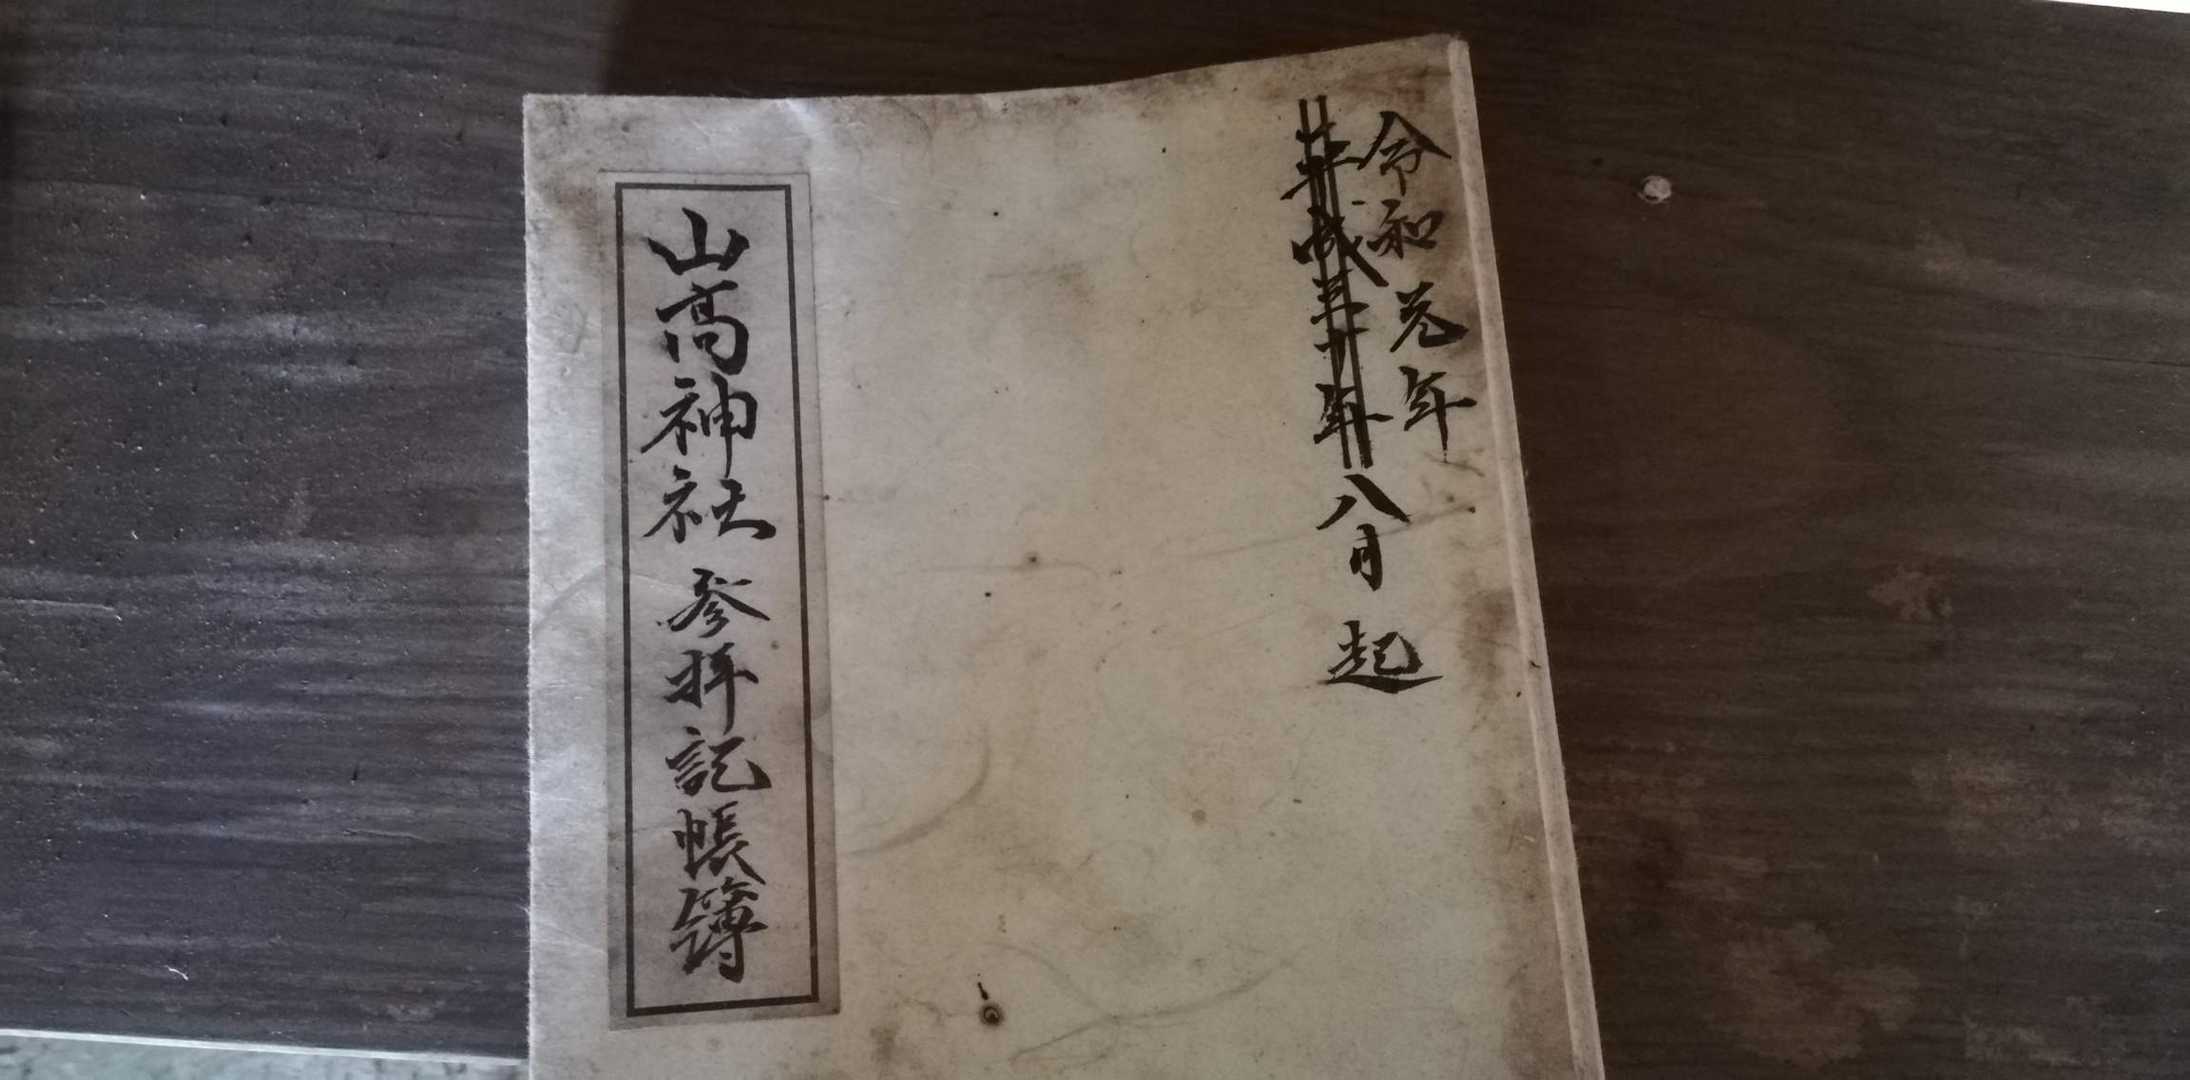 令和元年
平成三十年八月起
山高神社 参拝記帳簿